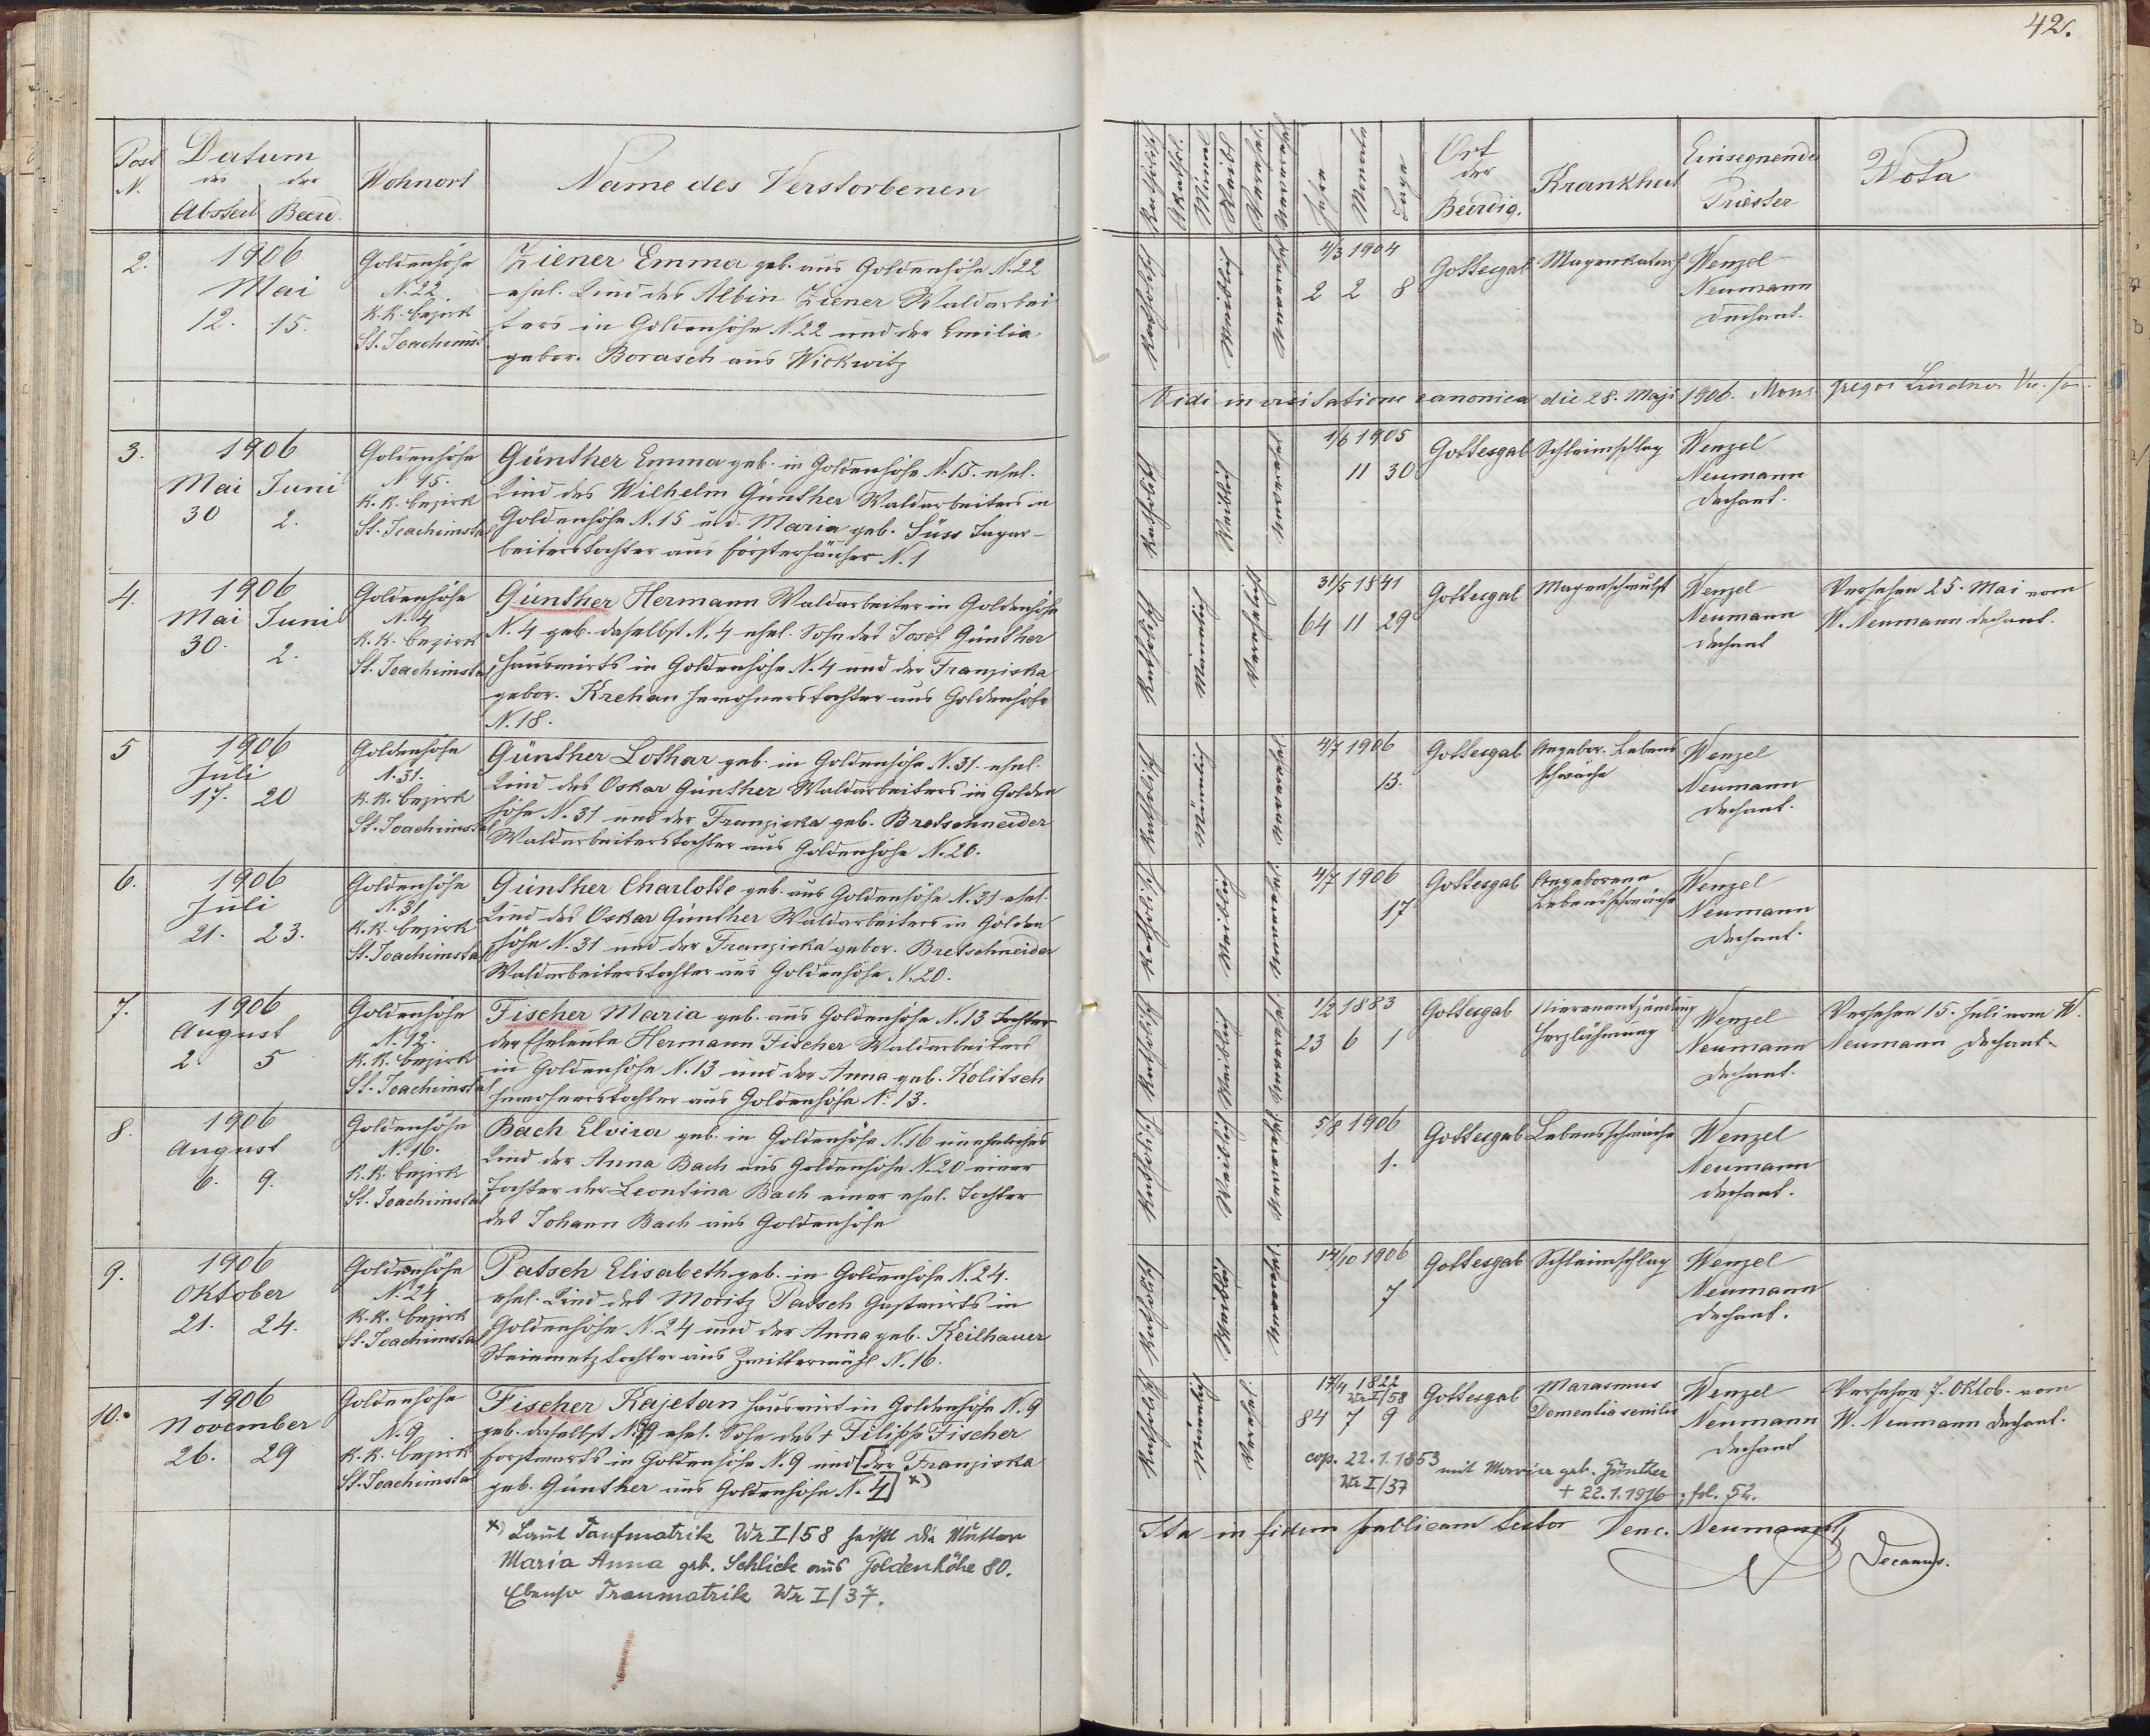 42.
Post N.
Datum
des Absterb.
der Beerd.
Wohnort
Name des Verstorbenen
Katholisch
Akathol.
Männl
Weibl
Verehel.
Unverehel
Jahre
Monate
Tage
Ort der Beerdig.
Krankheit
Einsegnende Priester
Nota
2.
1906
Mai
12. 15.
Goldenhöhe
N. 22
K.K. bezirk
St. Joachims.
Ziener Emma geb. aus Goldenhöhe N. 22
ehel. Kind des Albin Ziener Waldarbei
ters in Goldenhöhe N. 22 und der Emilia
gebor. Borasch aus Wickwitz
Katholisch
Weiblich
Unverehel
4/3 1904
2 2 8
Gottesgab
Magenkatarrh
Wenzel
Neumann
Dechant.
Vidi in visitatione canonica die 28. Maji 1906. Gregor Lindner
3.
1906
Mai Juni
30 2.
Goldenhöhe
N. 15.
K.K. bezirk
St. Joachimsta
Günther Emma geb. in Goldenhöhe N. 15. ehel.
Kind des Wilhelm Günther Waldarbeiters in
Goldenhöhe N. 15 u. d. Maria geb. Süss Tagar-
beiterstochter aus Försterhäuser N. 1
Katholisch
Weiblich
Unverehel
1/6 1905
11 30
Gottesgab
Schleimschlag
Wenzel
Neumann
Dechant.
4.
1906
Mai Juni
30. 2.
Goldenhöhe
N. 4
K.K. bezirk
St. Joachimsta
Günther Hermann Waldarbeiter in Goldenhöhe
N. 4 geb. daselbst N. 4 ehel. Sohn des Josef Günther
Hauswirts in Goldenhöhe N. 4 und der Franziska
gebor. Krehan Inwohnerstochter aus Goldenhöhe
N. 18.
Katholisch
Männlich
Verehelicht
31/5 1841
64 11 29
Gottesgab
Magenschwulst
Wenzel
Neumann
Dechant
Versehen 25. Mai vom
W. Neumann Dechant.
5
1906
Juli
17. 20
Goldenhöhe
N. 31.
K.K. bezirk
St. Joachimsta
Günther Lothar geb. in Goldenhöhe N. 31. ehel.
Kind des Oskar Günther Waldarbeiters in Golden
höhe N. 31 und der Franziska geb. Bretschneider
Waldarbeiterstochter aus Goldenhöhe N. 20.
Katholisch
Männlich
Unverehel
4/7 1906
13.
Gottesgab
Angebor. Lebens
schwäche
Wenzel
Neumann
Dechant.
6.
1906
Juli
21. 23.
Goldenhöhe
N. 31
K.K. bezirk
St. Joachimsta
Günther Charlotte geb. aus Goldenhöhe N. 31 ehel.
Kind des Oskar Günther Waldarbeiters in Golden
höhe N. 31 und der Franziska gebor. Bretschneider
Waldarbeiterstochter aus Goldenhöhe N. 20.
Katholisch
Weiblich
Unverehel.
4/7 1906
17
Gottesgab
Angeborene
Lebensschwäche
Wenzel
Neumann
Dechant.
7.
1906
August
2. 5
Goldenhöhe
N. 12.
K.K. bezirk
St. Joachimstal
Fischer Maria geb. aus Goldenhöhe N. 13 Tochter
der Eheleute Hermann Fischer Waldarbeiters
in Goldenhöhe N. 13 und der Anna geb. Kolitsch
Inwohnerstochter aus Goldenhöhe N. 13.
Katholisch
Weiblich
Unverehel
1/2 1883
23 6 1
Gottesgab
Nierenentzündung
Herzlähmung
Wenzel
Neumann
Dechant.
Versehen 15. Juli vom W.
Neumann Dechant.
8.
1906
August
6. 9.
Goldenhöhe
N. 16.
K.K. bezirk
St. Joachimstal
Bach Elvira geb. in Goldenhöhe N. 16 uneheliches
Kind der Anna Bach aus Goldenhöhe N. 20 einer
Tochter der Leontina Bach einer ehel. Tochter
des Johann Bach aus Goldenhöhe
Katholisch
Weiblich
Unverehel.
5/8 1906
1.
Gottesgab
Lebensschwäche
Wenzel
Neumann
Dechant.
9.
1906
Oktober
21. 24.
Goldenhöhe
N. 24
K.K. bezirk
St. Joachimstal
Patsch Elisabeth geb. in Goldenhöhe N. 24.
ehel. Kind des Moritz Patsch Gastwirts in
Goldenhöhe N. 24 und der Anna geb. Keilhauer
Steinmetztochter aus Zwittermühl N. 16.
Katholisch
Weiblich
Unverehel
14/10 1906
7
Gottesgab
Schleimschlag
Wenzel
Neumann
Dechant.
10.
1906
November
26. 29
Goldenhöhe
N. 9
K.K. bezirk
St. Joachimstal
Fischer Kajetan Hauswirt in Goldenhöhe N. 9
geb. daselbst N. 9 ehel. Sohn des + Filipp Fischer
Forstwarts in Goldenhöhe N. 9 und [der Franziska
geb. Günther aus Goldenhöhe N. 4] x)
Katholisch
Männlich
Verehel.
17/4 1822
Wr I/58
84 7 9
Gottesgab
Marasmus
Dementia senilis
Wenzel
Neumann
Dechant
Versehen 7. Oktob. vom
W. Neumann Dechant.
cop. 22.1.1853 mit Maria geb. Günther
Wr I/37 + 22.1.1916, fol. 52.
x) Laut Taufmatrik Wr I/58 heißt die Mutter
Maria Anna geb. Schlick aus Goldenhöhe 80.
Ebenso Traumatrik Wr I/37.
Ita in fidem publicam testor Venc. Neumann
Decanus.